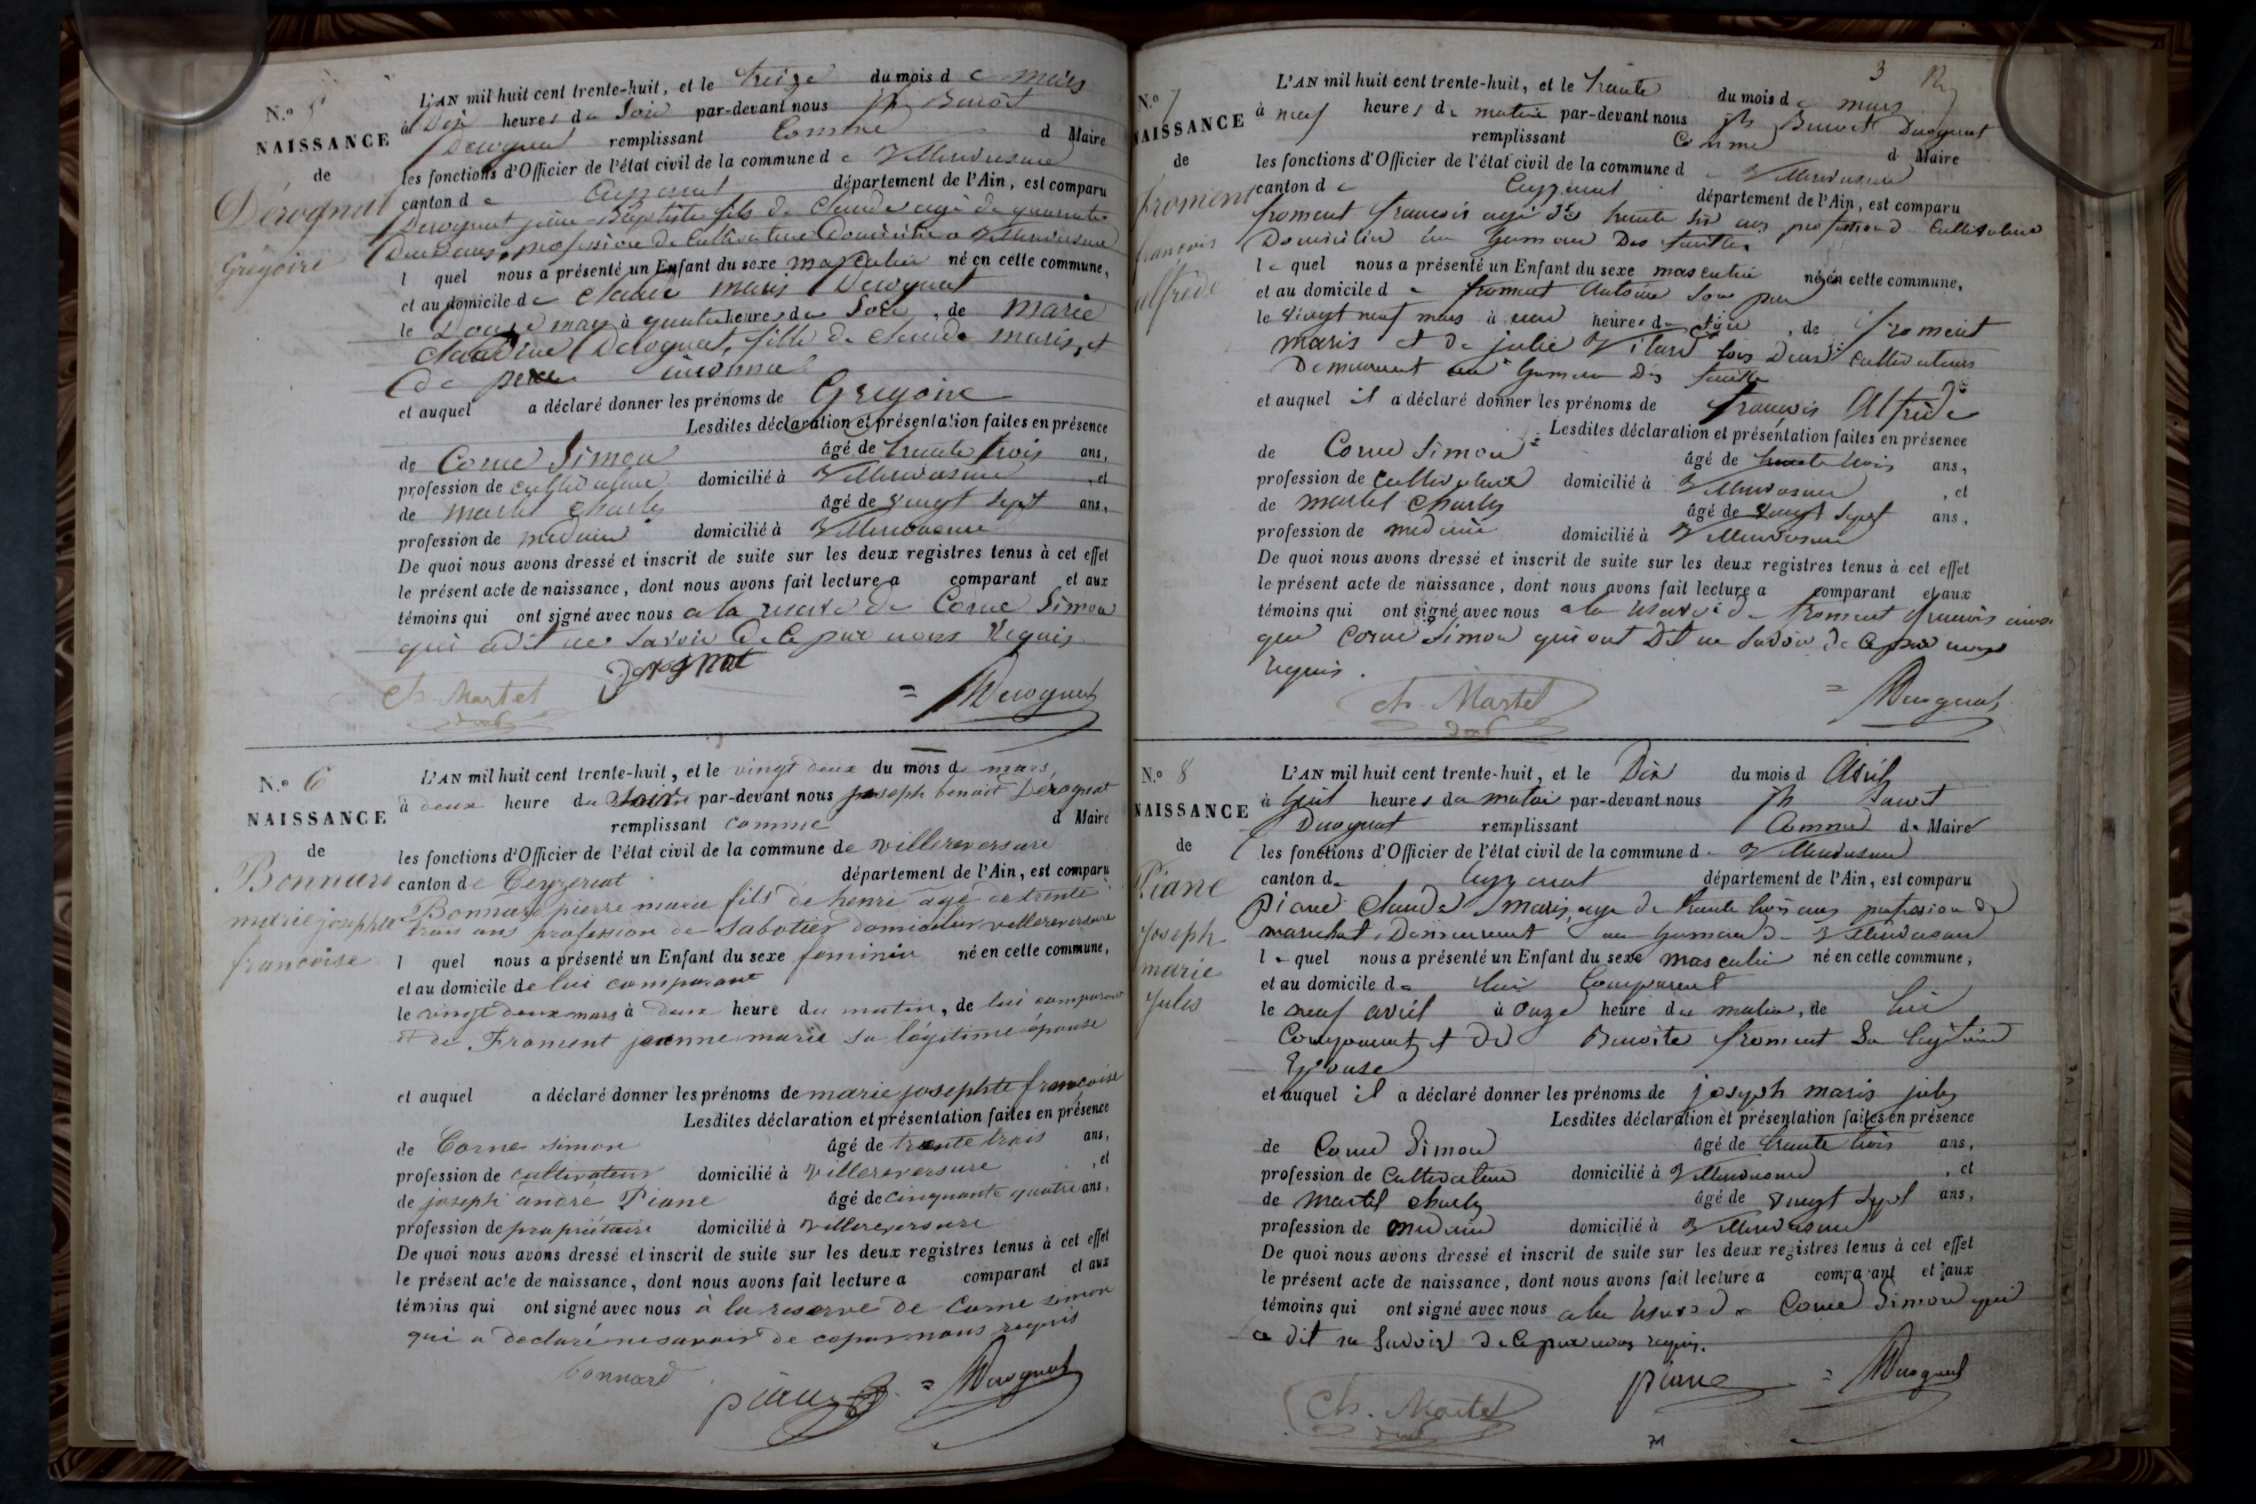 N.o 5
NAISSANCE
de
Dérognat
Grégoire
L'AN mil huit cent trente-huit, et le treize du mois de mars
à Dix heures du Soir par-devant nous jh Benoît
Derognat remplissant Comme d Maire
les fonctions d'Officier de l'état civil de la commune de Villereversure
canton de Ceyzeriat département de l'Ain, est comparu
Derognat jean Baptiste fils de Claude agé de quarante
Deux ans, profession de Cultivateur Domicilié a Villereversure
l quel nous a présenté un Enfant du sexe masculin né en cette commune,
et au domicile de Claude marie Derognat
le Douze mars à quatre heures du Soir, de Marie
Claudine Derognat, fille de Claude marie, et
de père inconnu
et auquel a déclaré donner les prénoms de Gregoire
Lesdites déclaration et présentation faites en présence
de Corne Simon âgé de trente trois ans,
profession de cultivateur domicilié à Villereversure, et
de Martel Charles âgé de vingt sept ans,
profession de medecin domicilié à Villereversure
De quoi nous avons dressé et inscrit de suite sur les deux registres tenus à cet effet
le présent acte de naissance, dont nous avons fait lecture a comparant et aux
témoins qui ont signé avec nous a la reserve de Corne Simon
qui a dit ne Savoir de ce par nous requis
Derognat
Ch. Martel = Derognat
N.o 6
NAISSANCE
de
Bonnard
marie josephte
francoise
L'AN mil huit cent trente-huit, et le vingt deux du mois de mars
à deux heure du Soir par-devant nous joseph benoit Dérognat
remplissant comme d Maire
les fonctions d'Officier de l'état civil de la commune de villereversure
canton de Ceyzeriat département de l'Ain, est comparu
Bonnard pierre marie fils de henri agé de trente
trois ans profession de Sabotier domicilié a villereversure
l quel nous a présenté un Enfant du sexe feminin né en cette commune,
et au domicile de lui comparant
le vingt deux mars à deux heure du matin, de lui comparant
et de Froment jeanne marie sa légitime épouse
et auquel a déclaré donner les prénoms de marie josephte françoise
Lesdites déclaration et présentation faites en présence
de Corne simon âgé de trente trois ans,
profession de cultivateur domicilié à villereversure, et
de joseph andré Piane âgé de cinquante quatre ans,
profession de propriétaire domicilié à villereversure
De quoi nous avons dressé et inscrit de suite sur les deux registres tenus à cet effet
le présent acte de naissance, dont nous avons fait lecture a comparant et aux
témoins qui ont signé avec nous à la reserve de Corne simon
qui a declaré ne savoir de ce par nous requis
bonnard
piane = Derognat
3
N.o 7
NAISSANCE
de
froment
françois
alfrède
L'AN mil huit cent trente-huit, et le trente du mois de mars
à neuf heures du matin par-devant nous jh Benoit Derognat
remplissant Comme d Maire
les fonctions d'Officier de l'état civil de la commune de Villereversure
canton de Ceyzeriat département de l'Ain, est comparu
froment francois agé de trente six ans profession Cultivateur
Domicilié au hameau Des
le quel nous a présenté un Enfant du sexe masculin né en cette commune,
et au domicile de froment Antoine Son pere
le vingt neuf mars à une heures du Soir, de froment
marie et de julie Vilard tous Deux Cultivateurs
Demeurant au hameau Des
et auquel il a déclaré donner les prénoms de françois Alfrède
Lesdites déclaration et présentation faites en présence
de Corne Simon âgé de trente trois ans,
profession de Cultivateur domicilié à Villereversure, et
de martel Charles âgé de vingt Sept ans,
profession de medecin domicilié à Villereversure
De quoi nous avons dressé et inscrit de suite sur les deux registres tenus à cet effet
le présent acte de naissance, dont nous avons fait lecture a comparant et aux
témoins qui ont signé avec nous a la reserve de froment francois ainsi
que Corne Simon qui ont Dit ne Savoir de ce par nous
requis.
Ch. Martel = Derognat
N.o 8
NAISSANCE
de
Piane
Joseph
marie
Jules
L'AN mil huit cent trente-huit, et le Dix du mois d Avril
à huit heures du matin par-devant nous jh Benoit
Derognat remplissant Comme de Maire
les fonctions d'Officier de l'état civil de la commune de Villereversure
canton de Ceyzeriat département de l'Ain, est comparu
Piane Claude Marie, age de trente trois ans profession de
marechal, Demeurant au hameau de Villereversure
le quel nous a présenté un Enfant du sexe masculin né en cette commune,
et au domicile de lui Comparant
le neuf avril à onze heure du matin, de lui
Comparant et de Benoite froment Sa legitime
Epouse
et auquel il a déclaré donner les prénoms de joseph marie jules
Lesdites déclaration et présentation faites en présence
de Corne Simon âgé de trente trois ans,
profession de Cultivateur domicilié à Villereversure, et
de Martel Charles âgé de vingt Sept ans,
profession de medecin domicilié à Villereversure
De quoi nous avons dressé et inscrit de suite sur les deux registres tenus à cet effet
le présent acte de naissance, dont nous avons fait lecture a comparant et aux
témoins qui ont signé avec nous a la reserve de Corne Simon qui
a dit ne Savoir de ce par nous requis.
piane = Derognat
Ch. Martel